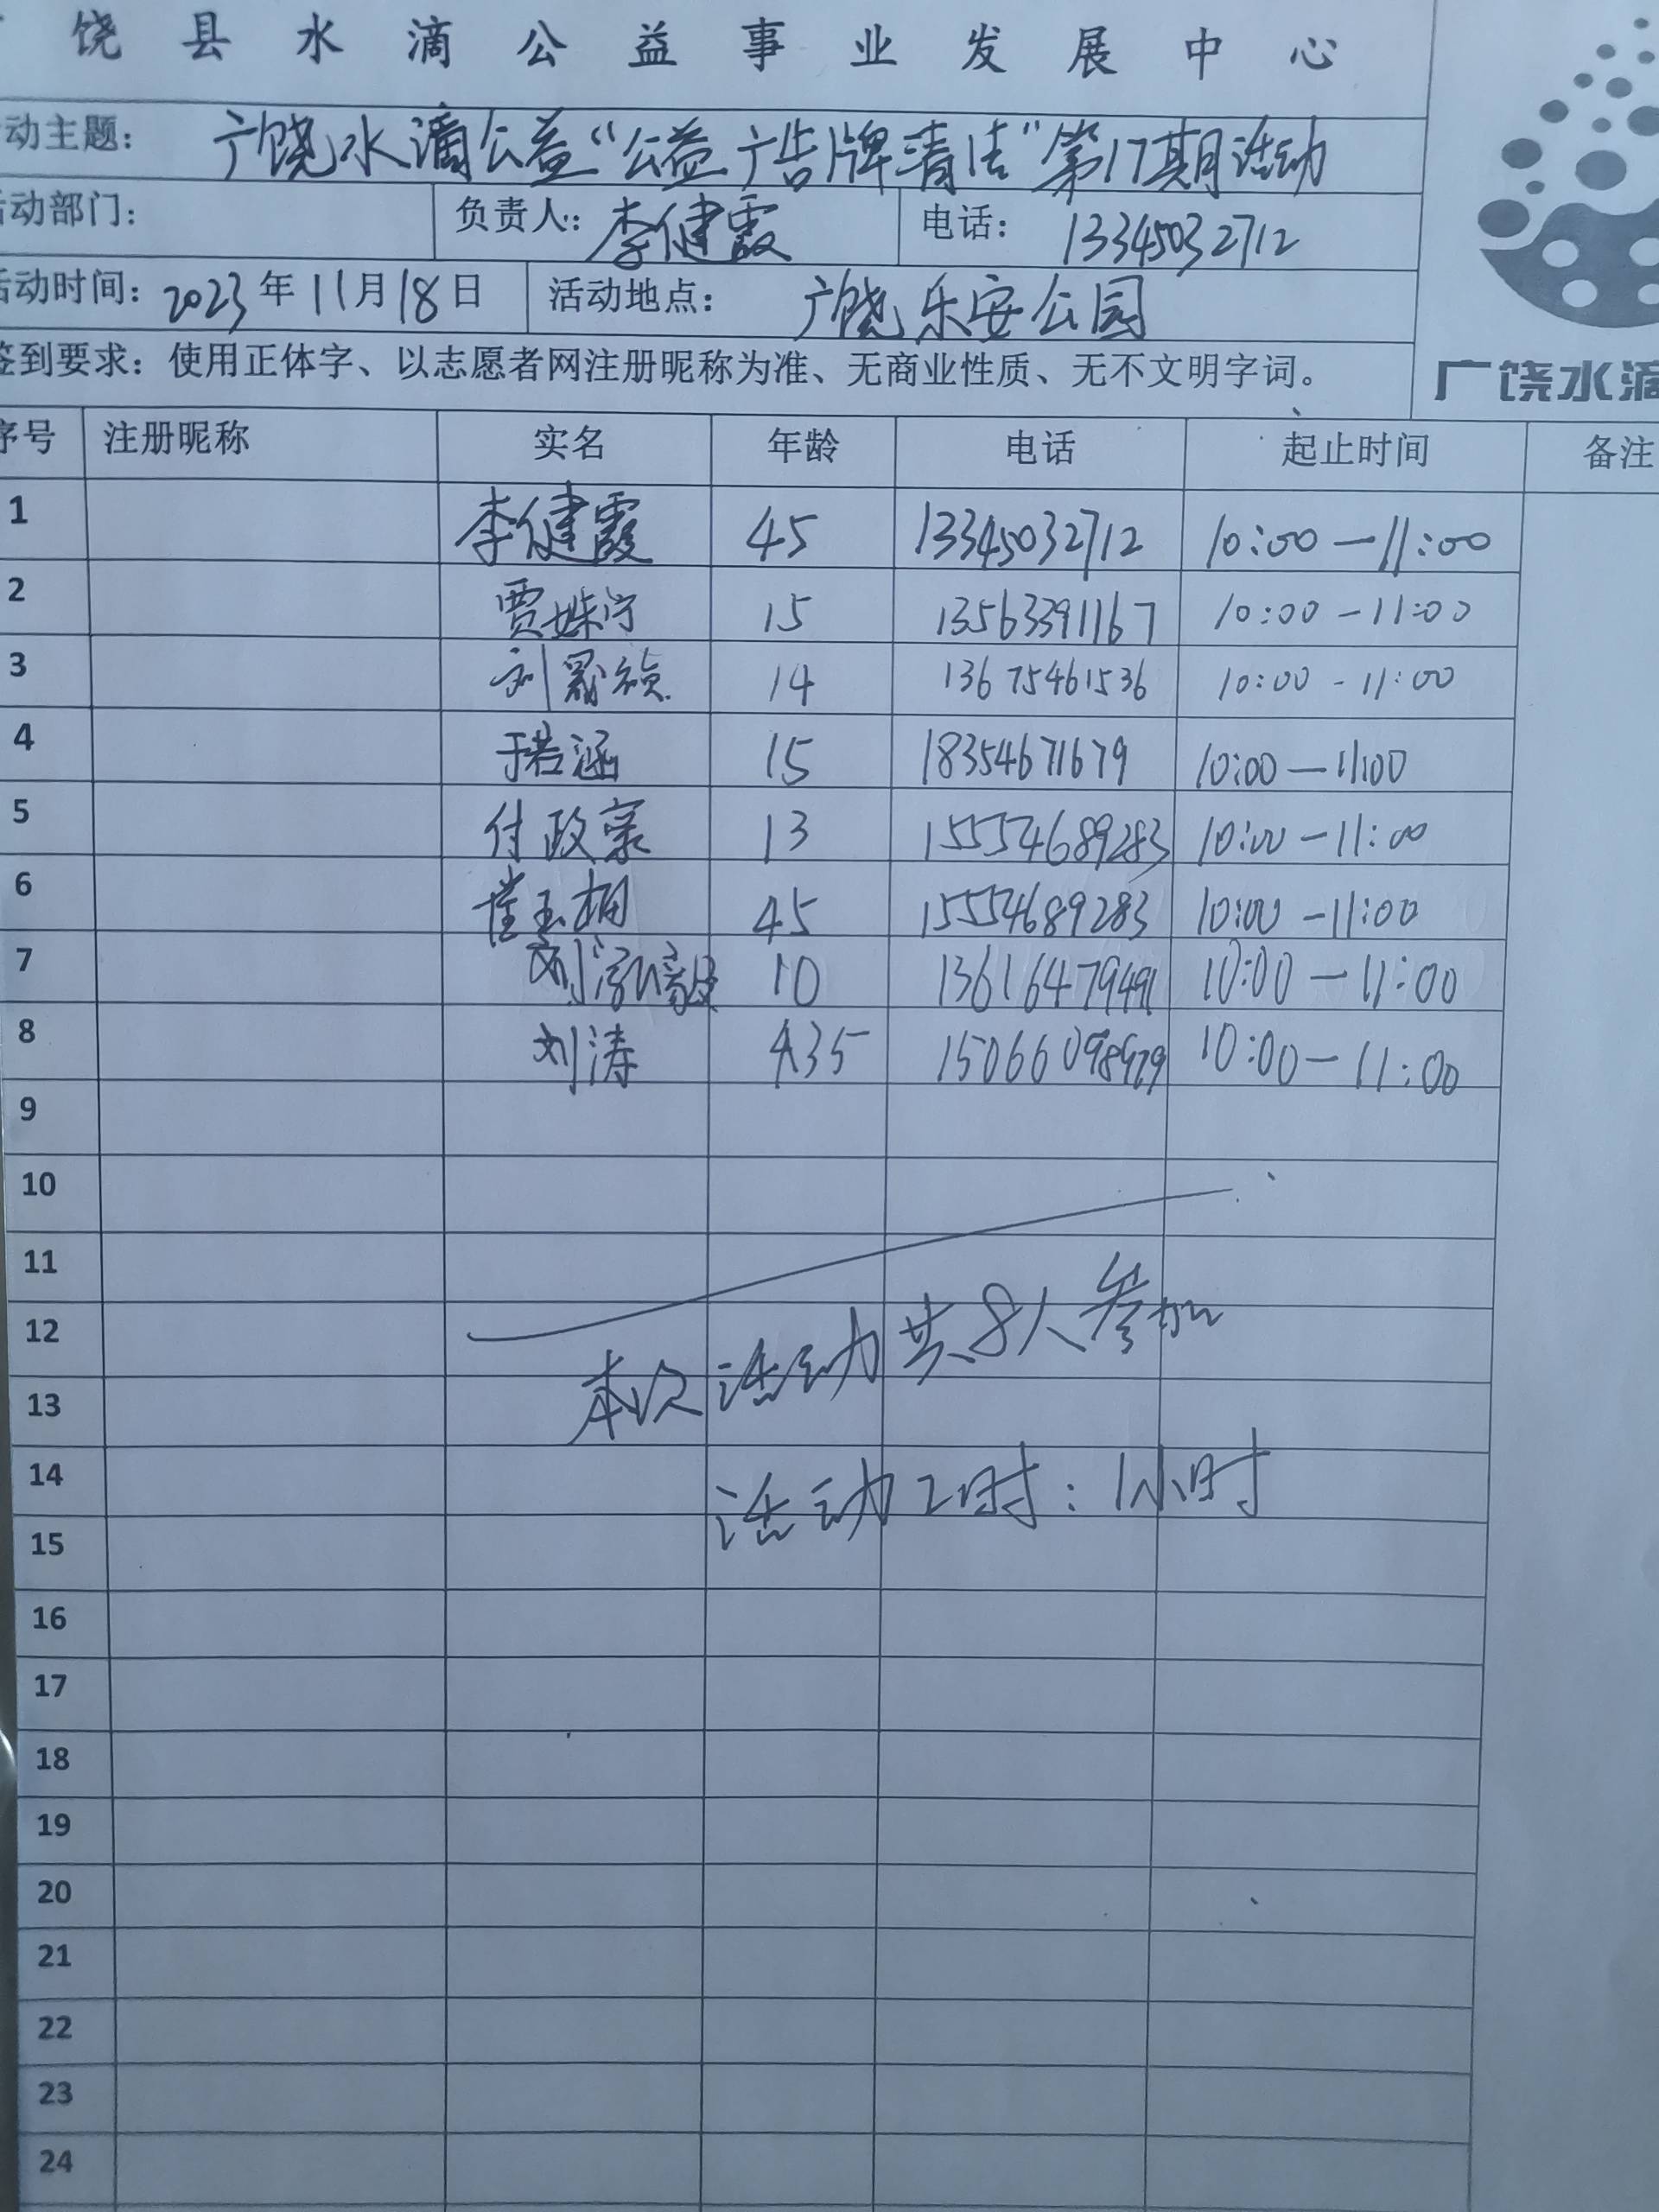 饶县水滴公益事业发展中心
动主题：广饶水滴公益“公益广告牌清洁”第17期活动
活动部门： 负责人：李健霞 电话：13345032712
活动时间：2023年11月18日 活动地点：广饶乐安公园
签到要求：使用正体字、以志愿者网注册昵称为准、无商业性质、无不文明字词。
广饶水滴
序号 注册昵称 实名 年龄 电话 起止时间 备注
1 李健霞 45 13345032712 10:00—11:00
2 贾姝宁 15 13563391167 10:00-11:00
3 刘 14 13675461536 10:00-11:00
4 于若涵 15 18354671679 10:00—11:00
5 付政豪 13 15554689283 10:00-11:00
6 45 15554689283 10:00-11:00
7 刘泓毅 10 13616479491 10:00—11:00
8 刘涛 35 15066098979 10:00—11:00
9
10
11
12
本次活动共8人参加
13
14
活动工时：1小时
15
16
17
18
19
20
21
22
23
24